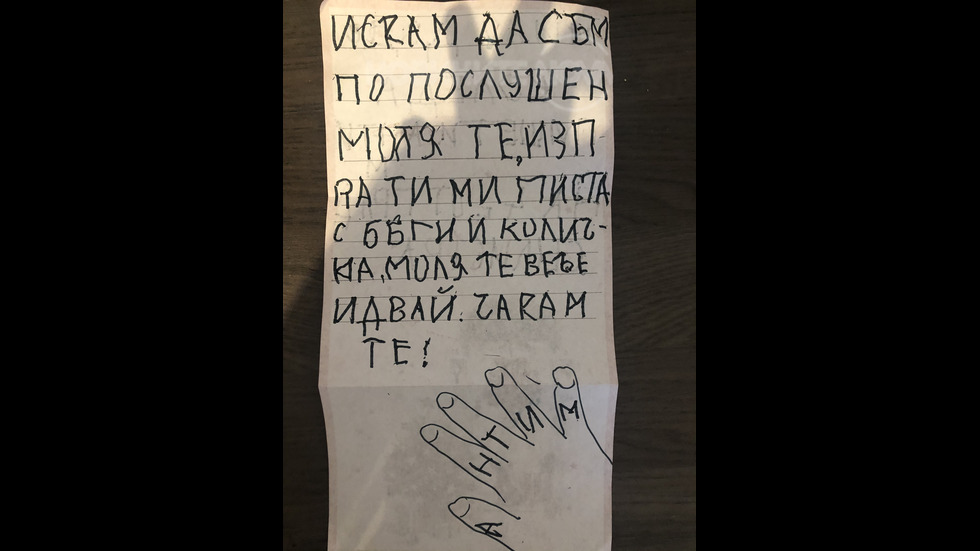 ИСКАМ ДА СЪМ
ПО ПОСЛУШЕН
МОЛЯ ТЕ, ИЗП
РАТИ МИ ПИСТА
С БЪГИ И КОЛИЧ-
КА, МОЛЯ ТЕ ВЕЧЕ
ИДВАЙ. ЧАКАМ
ТЕ!